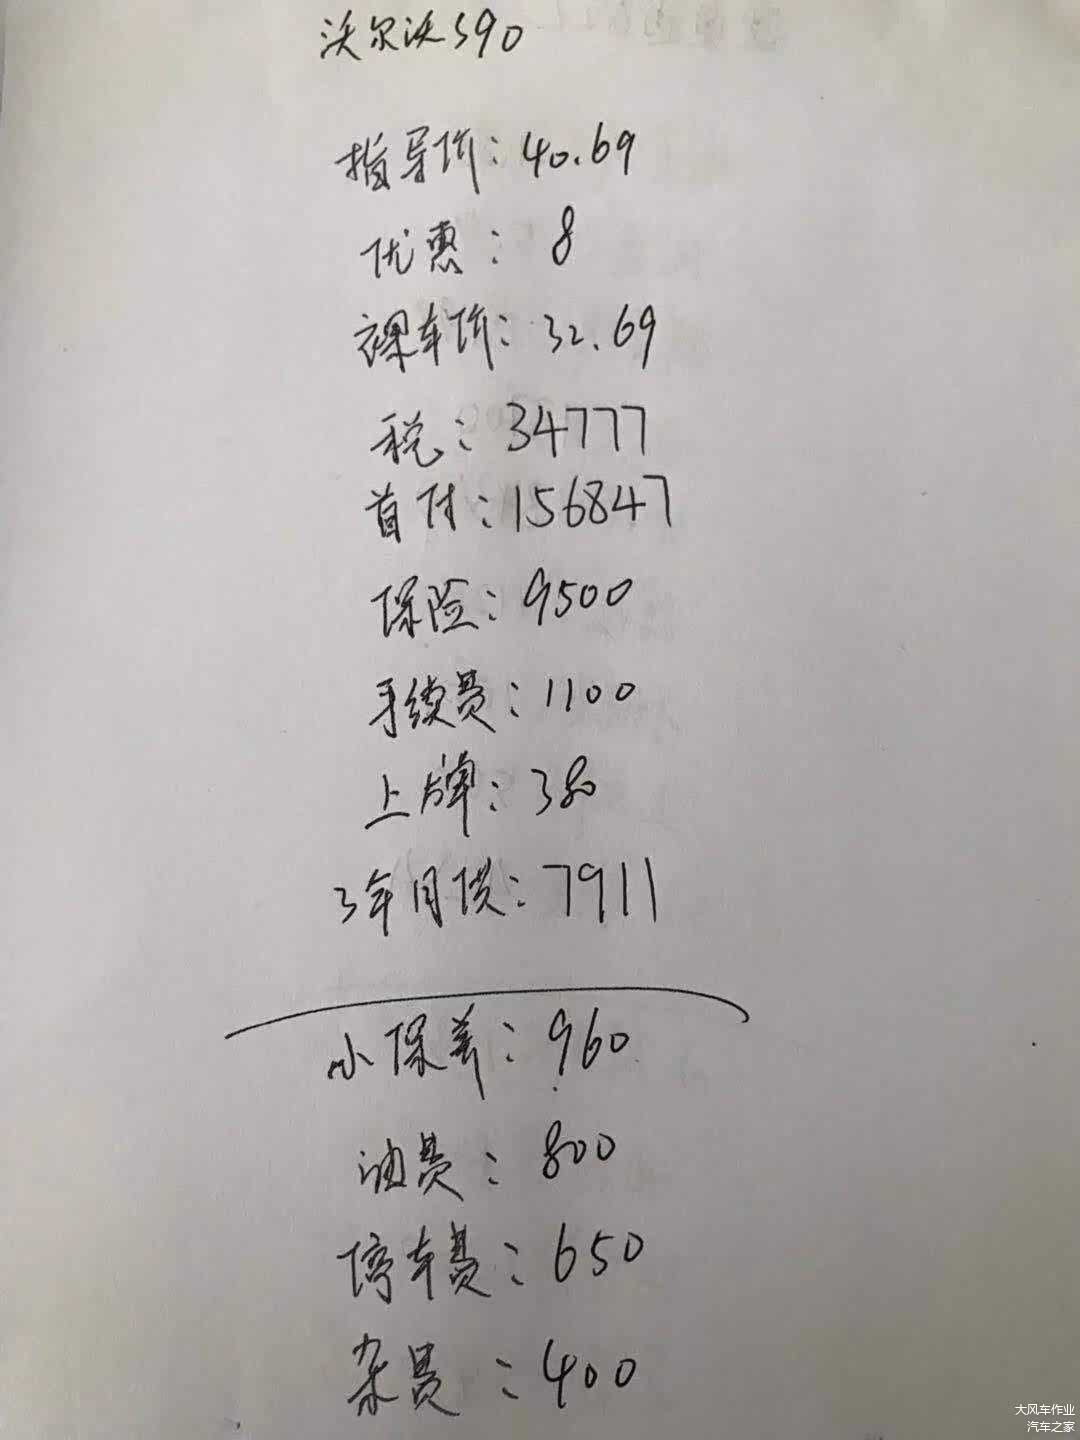 沃尔沃S90
指导价：40.69
优惠：8
裸车价：32.69
税：34777
首付：156847
保险：9500
手续费：1100
上牌：380
3年月供：7911
小保养：960
油费：800
停车费：650
杂费：400
大风车作业
汽车之家